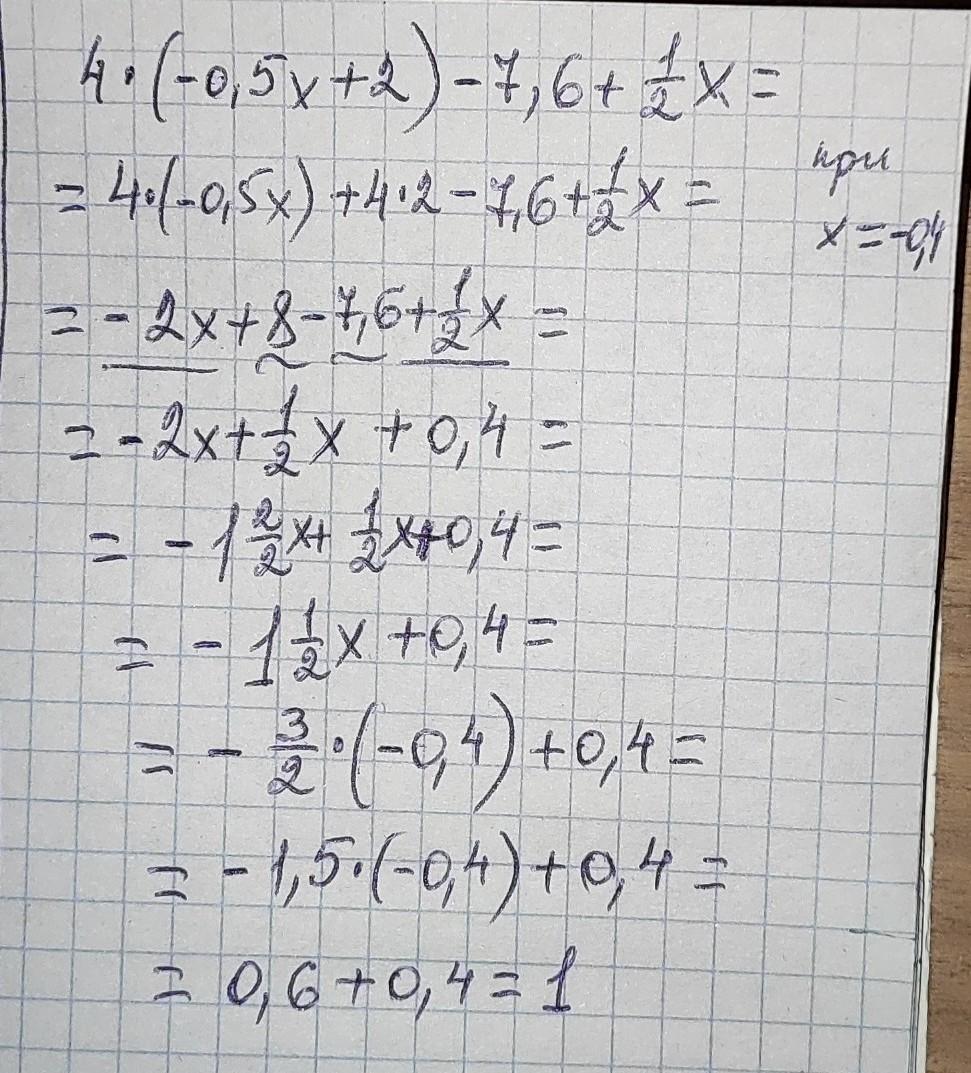 4·(-0,5x+2)-7,6+1/2x=
=4·(-0,5x)+4·2-7,6+1/2x=
при
x=-0,4
=-2x+8-7,6+1/2x=
=-2x+1/2x+0,4=
=-1 2/2x+1/2x+0,4=
=-1 1/2x+0,4=
=-3/2·(-0,4)+0,4=
=-1,5·(-0,4)+0,4=
=0,6+0,4=1